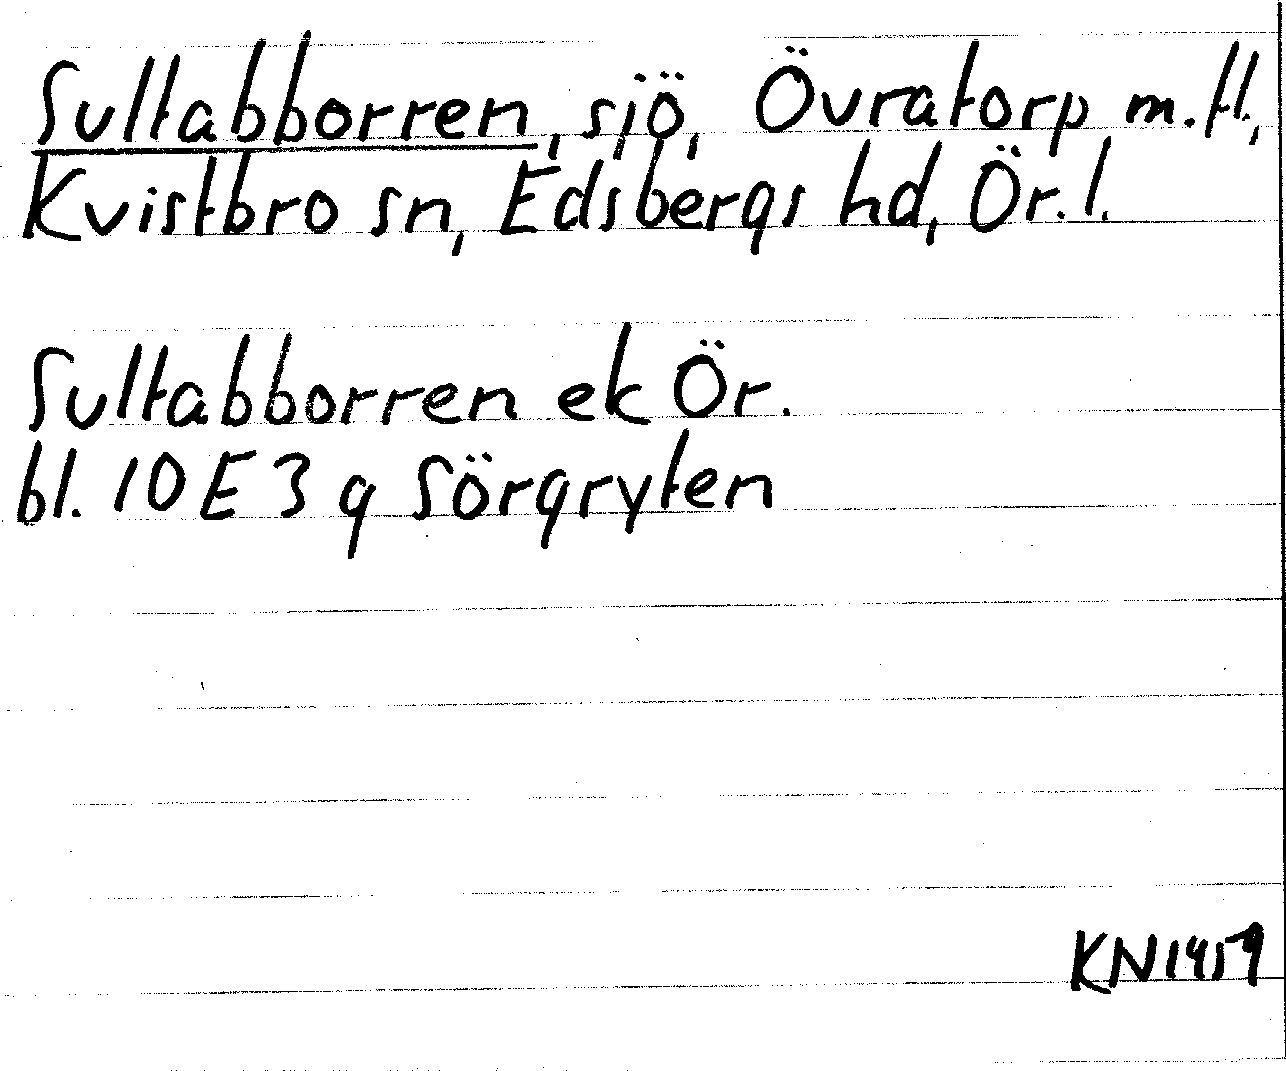 Sultabborren, sjö, Övratorp m.fl.,
Kvistbro sn, Edsbergs hd, Ör.l.
Sultabborren ek Ör.
bl. 10 E 3 g Sörgryten